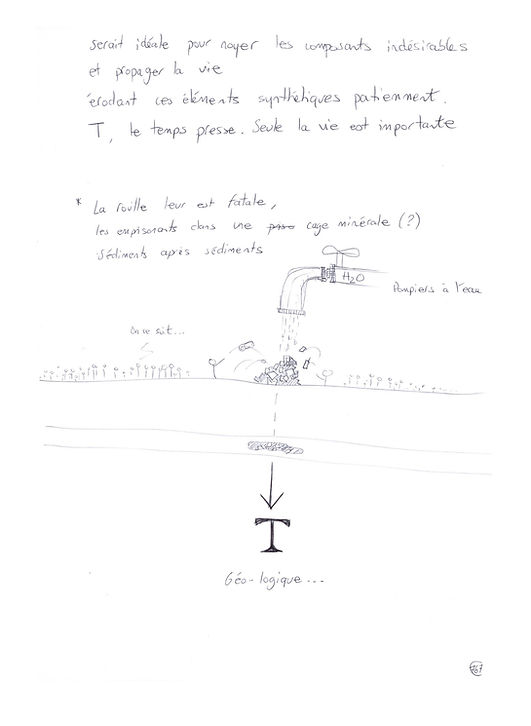 serait idéale pour noyer les composants indésirables
et propager la vie
érodant ces éléments synthétiques patiemment.
T, le temps presse. Seule la vie est importante
* La rouille leur est fatale,
les emprisonants dans une cage minérale (?)
Sédiments après sédiments
H2O
Pompiers à l'eau
On se suit...
T
Géo-logique...